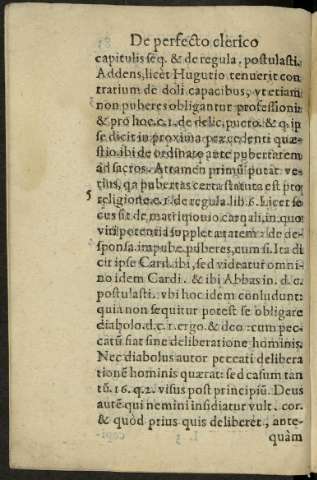 De perfecto clerico
capitulis seq. & de regula, postulasti.
Addens, licèt Hugutio tenuerit con
trarium de doli capacibus, vt etiam
non puberes obligantur professioni:
& pro hoc. c. 1. de delic. puero. & q. ip
se dicit in proxima præcedenti quæ-
stio. ibi de ordinato ante pubertatem
ad sacros. Attamen primũ putat ve-
rius, qa pubertas certa statuta est pro
5
religione. c. 1. de regula. lib. 6. Licet se
cus sit de matrimonio carnali, in quo
vis potentia supplet ætatem: de de-
sponsa. impube. puberes, cum si. Ita di
cit ipse Card. ibi, sed videatur omni-
no idem Cardi. & ibi Abbas in. d. c.
postulasti. vbi hoc idem concludunt:
quia non sequitur potest se obligare
diabolo. d. c. 1. ergo. & deo: cum pec-
catũ fiat sine deliberatione hominis.
Nec diabolus autor peccati delibera
tionẽ hominis quærat: sed casum tan
tũ. 16. q. 2. visus post principiũ. Deus
autẽ qui nemini insidiatur vult. cor.
& quòd prius quis deliberet, ante-
quàm